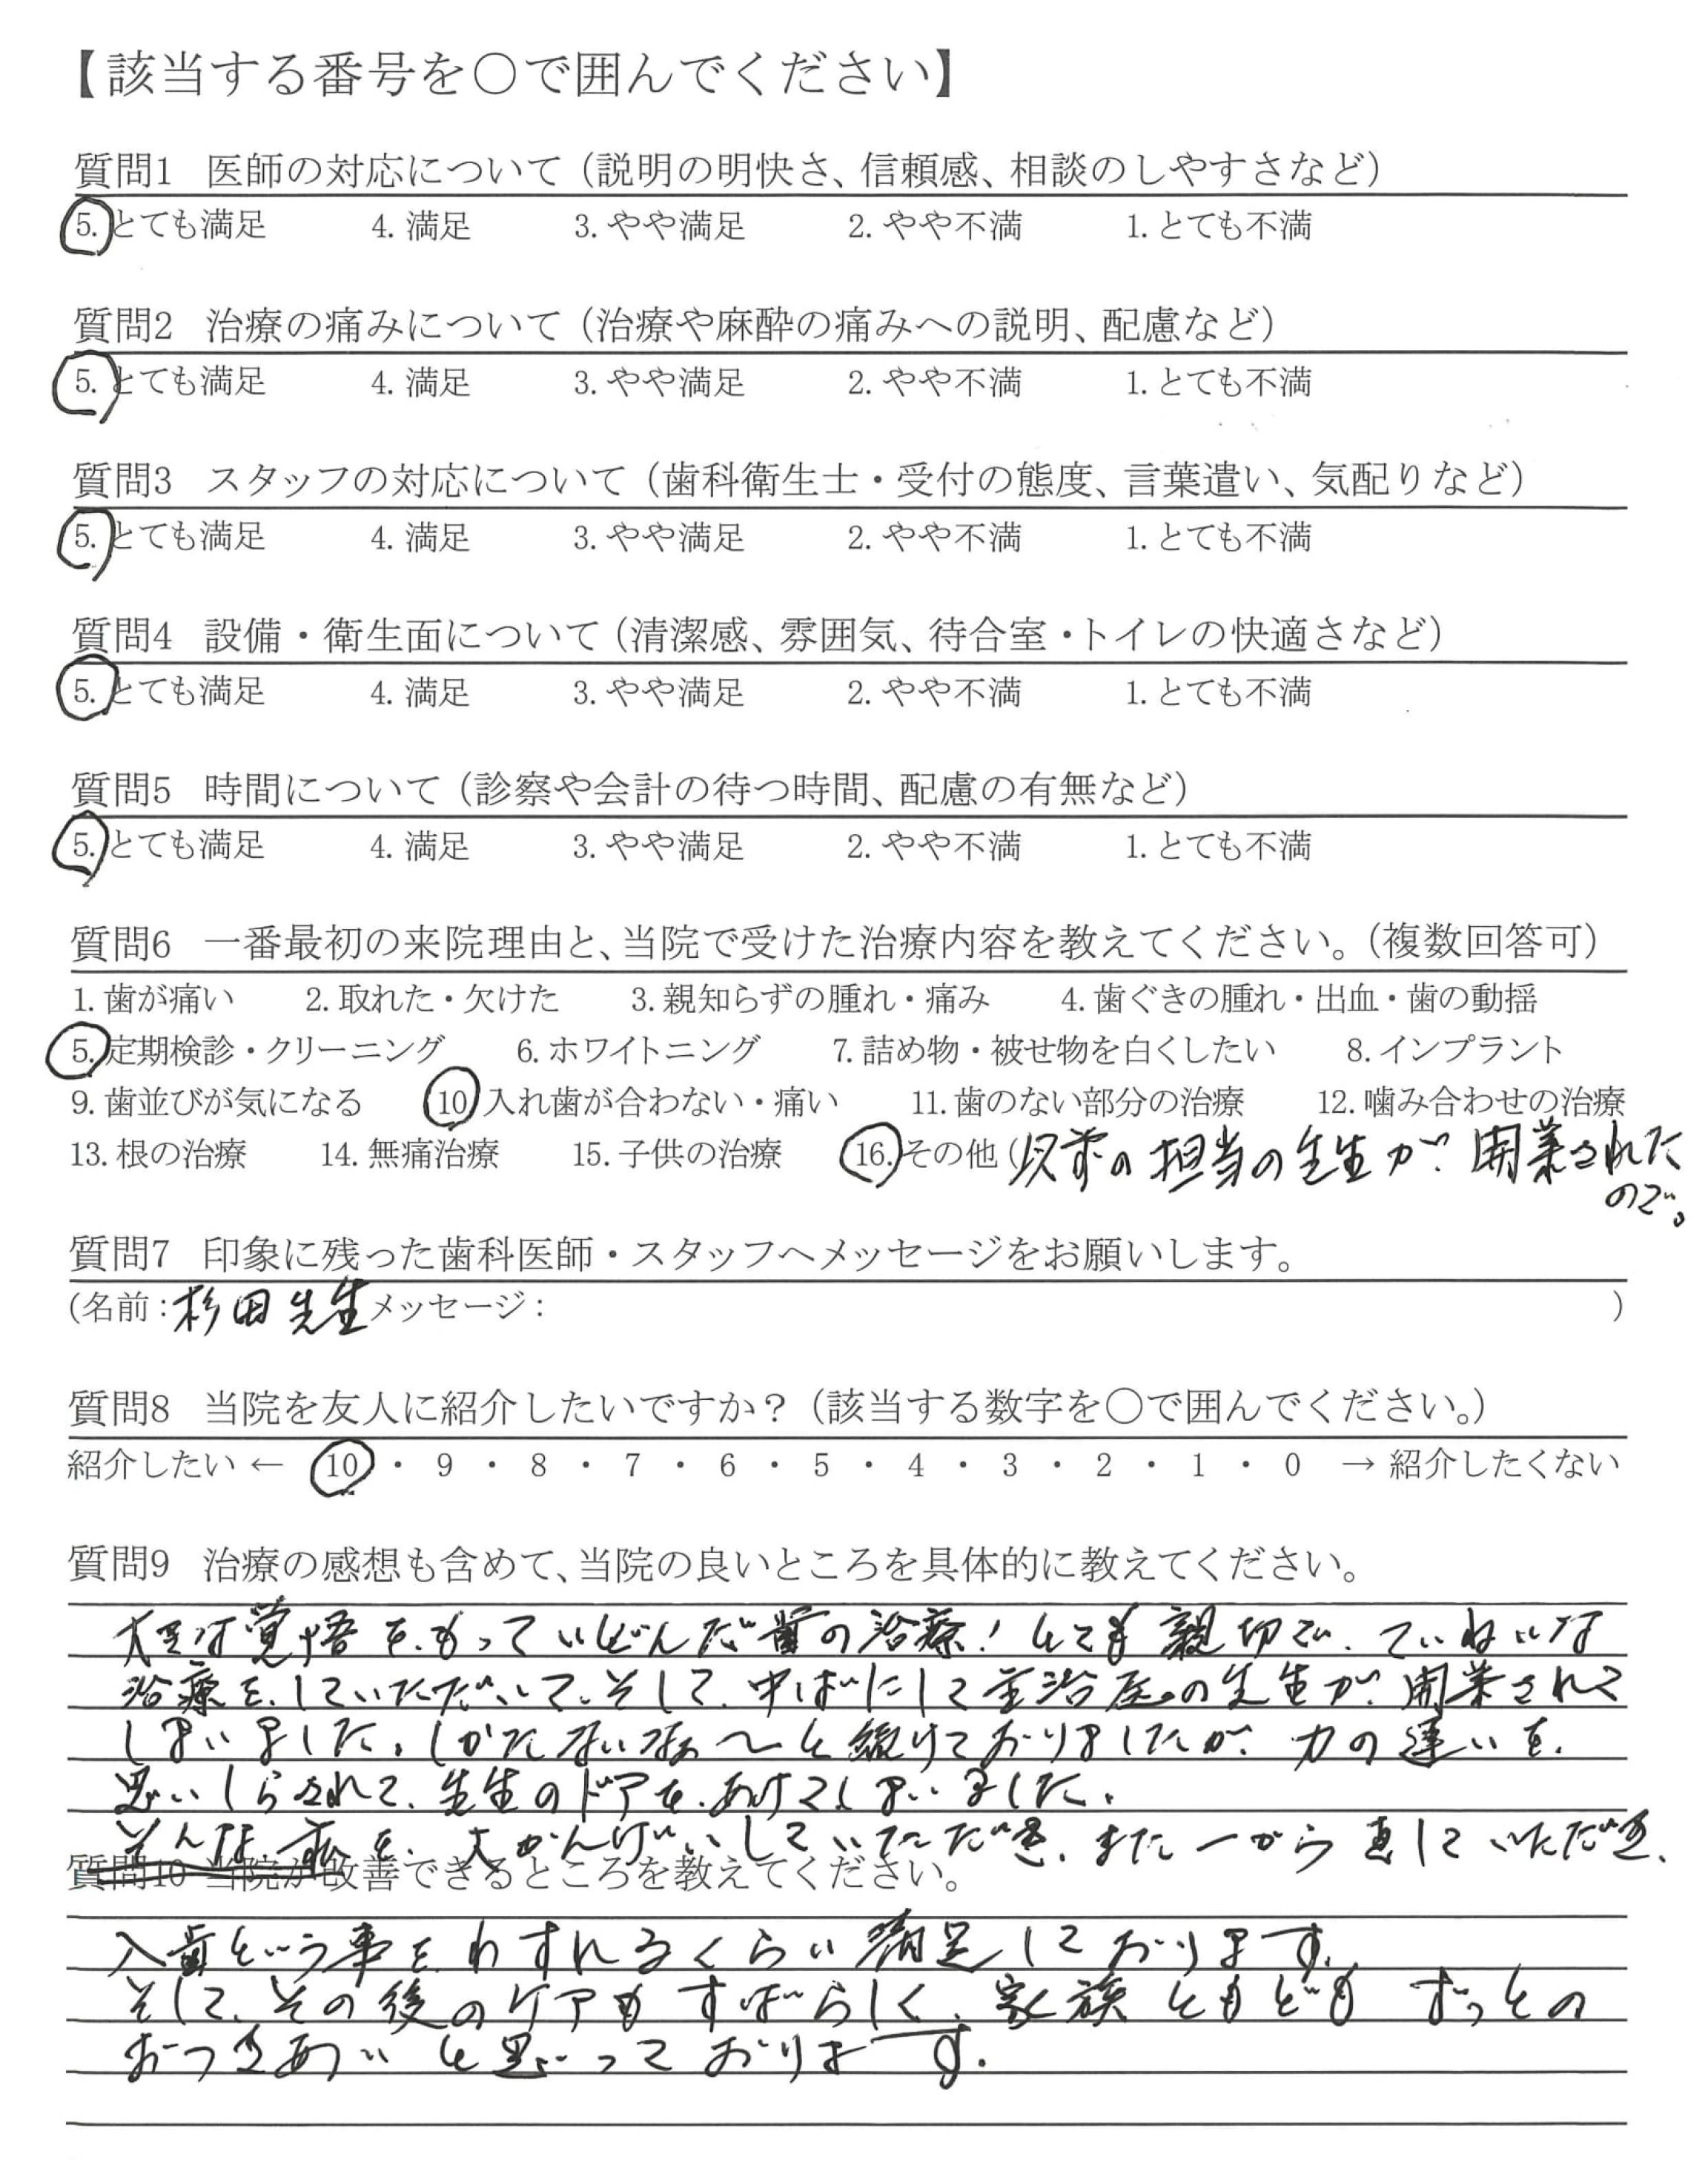 【該当する番号を〇で囲んでください】
質問1 医師の対応について（説明の明快さ、信頼感、相談のしやすさなど）
5. とても満足 4. 満足 3. やや満足 2. やや不満 1. とても不満
質問2 治療の痛みについて（治療や麻酔の痛みへの説明、配慮など）
5. とても満足 4. 満足 3. やや満足 2. やや不満 1. とても不満
質問3 スタッフの対応について（歯科衛生士・受付の態度、言葉遣い、気配りなど）
5. とても満足 4. 満足 3. やや満足 2. やや不満 1. とても不満
質問4 設備・衛生面について（清潔感、雰囲気、待合室・トイレの快適さなど）
5. とても満足 4. 満足 3. やや満足 2. やや不満 1. とても不満
質問5 時間について（診察や会計の待つ時間、配慮の有無など）
5. とても満足 4. 満足 3. やや満足 2. やや不満 1. とても不満
質問6 一番最初の来院理由と、当院で受けた治療内容を教えてください。（複数回答可）
1. 歯が痛い 2. 取れた・欠けた 3. 親知らずの腫れ・痛み 4. 歯ぐきの腫れ・出血・歯の動揺
5. 定期検診・クリーニング 6. ホワイトニング 7. 詰め物・被せ物を白くしたい 8. インプラント
9. 歯並びが気になる 10 入れ歯が合わない・痛い 11. 歯のない部分の治療 12. 噛み合わせの治療
13. 根の治療 14. 無痛治療 15. 子供の治療 16. その他（以前の担当の先生が開業された
ので。
質問7 印象に残った歯科医師・スタッフへメッセージをお願いします。
（名前：杉田先生 メッセージ： ）
質問8 当院を友人に紹介したいですか？（該当する数字を〇で囲んでください。）
紹介したい ← 10 ・ 9 ・ 8 ・ 7 ・ 6 ・ 5 ・ 4 ・ 3 ・ 2 ・ 1 ・ 0 → 紹介したくない
質問9 治療の感想も含めて、当院の良いところを具体的に教えてください。
覚悟をもっていどんだ歯の治療！とても親切で、ていねいな
治療を、していただいて、そして、中ばにして主治医の先生が、開業されて
しまいました。しかたないなぁ〜と続けておりましたが、力の違いを、
思いしらされて、先生のドアを、あけてしまいました。
そんな私を、大かんげいしていただき、また一から直していただき、
質問10 当院が改善できるところを教えてください。
入歯という事をわすれるくらい満足しております。
そして、その後のケアもすばらしく、家族ともどもずっとの
おつきあいと思っております。